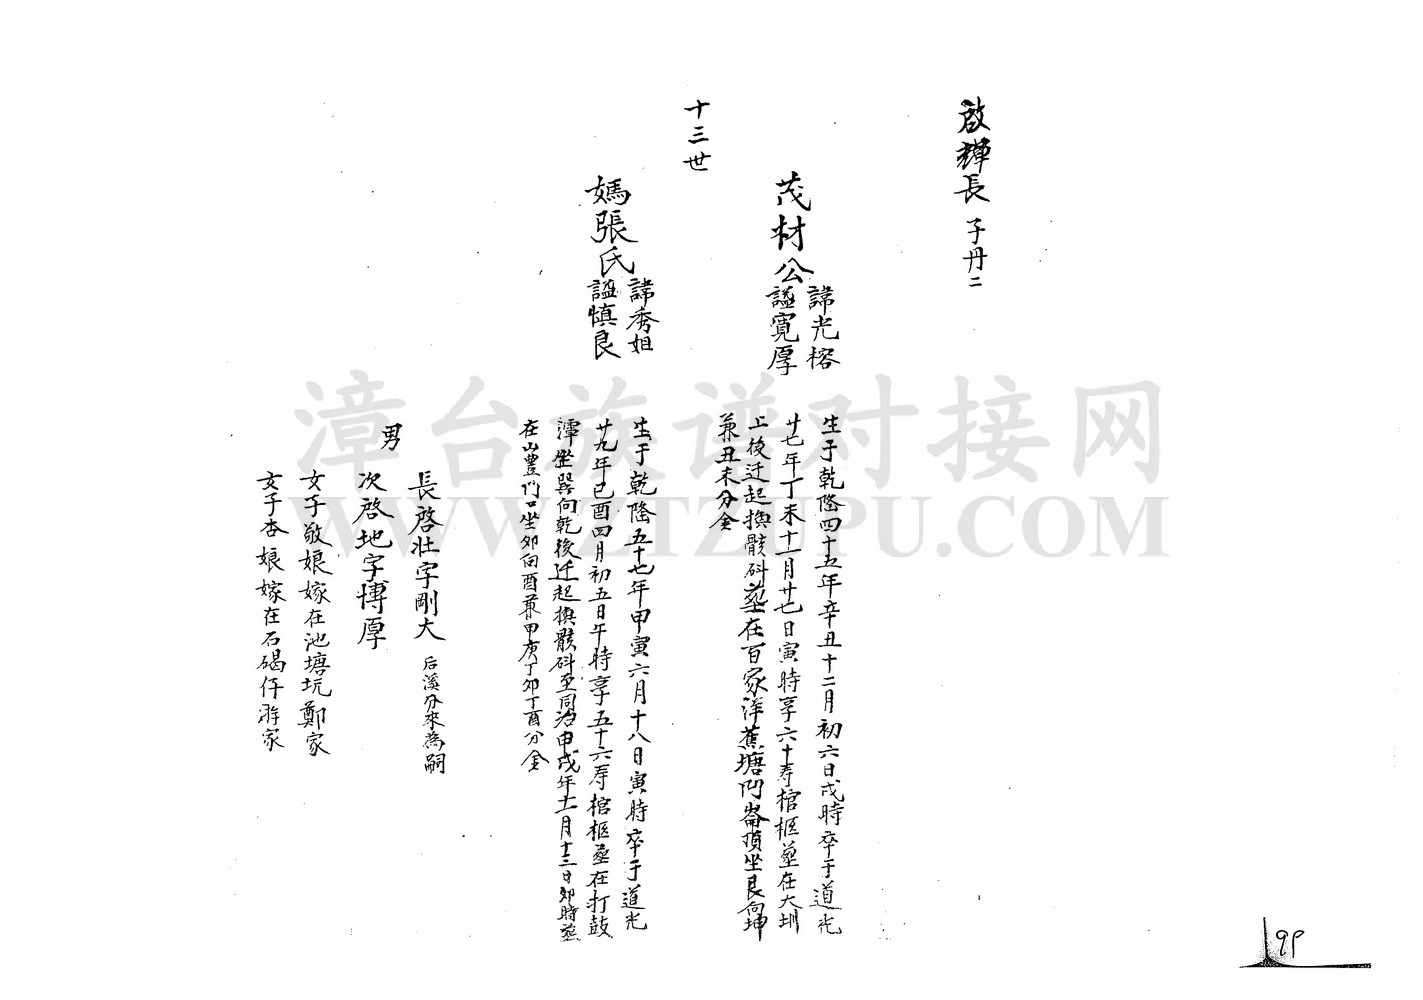 啟輝長 子丹二
茂材公 諱光榕 謚寬厚
生于乾隆四十五年辛丑十二月初六日戌時卒于道光
廿七年丁未十一月廿七日寅時享六十寿棺柩塟在大圳
上後迁起換骸砵塟在百家洋蕉塘門崙頂坐艮向坤
兼丑未分金
十三世
媽張氏 諱秀姐 謚慎良
生于乾隆五十七年甲寅六月十八日寅時卒于道光
廿九年己酉四月初五日午時享五十六寿棺柩塟在打鼓
潭坐巽向乾後迁起換骸砵至同治甲戌年十一月十三日卯時塟
在山豐門口坐卯向酉兼甲庚丁卯丁酉分金
男
長啓壯字剛大 后溪分來為嗣
次啓地字博厚
女子敬娘嫁在池塘坑鄭家
女子杏娘嫁在石碣仔游家
99
漳台族谱对接网
WWW.ZTZUPU.COM